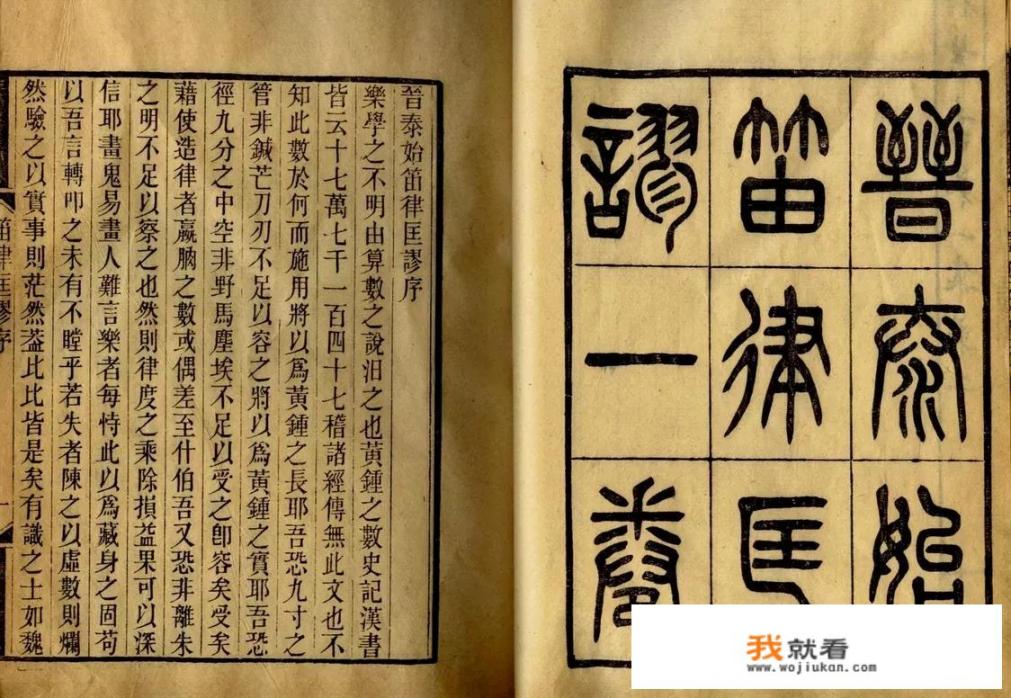 晉泰始
笛律匡
謬一卷
晉泰始笛律匡謬序
樂學之不明由算數之說汨之也黃鍾之數史記漢書
皆云十七萬七千一百四十七稽諸經傳無此文也不
知此數於何而施用將以爲黃鍾之長耶吾恐九寸之
管非鍼芒刀刃不足以容之將以爲黃鍾之實耶吾恐
徑九分之中空非野馬塵埃不足以受之卽容矣受矣
藉使造律者嬴朒之數或偶差至什伯吾又恐非離朱
之明不足以察之也然則律度之乘除損益果可以深
信耶畫鬼易畫人難言樂者每恃此以爲藏身之固苟
以吾言轉叩之未有不瞠乎若失者陳之以虛數則爛
然驗之以實事則茫然葢比比皆是矣有識之士如魏
笛律匡謬序
一
我就看
www.wojiukan.com